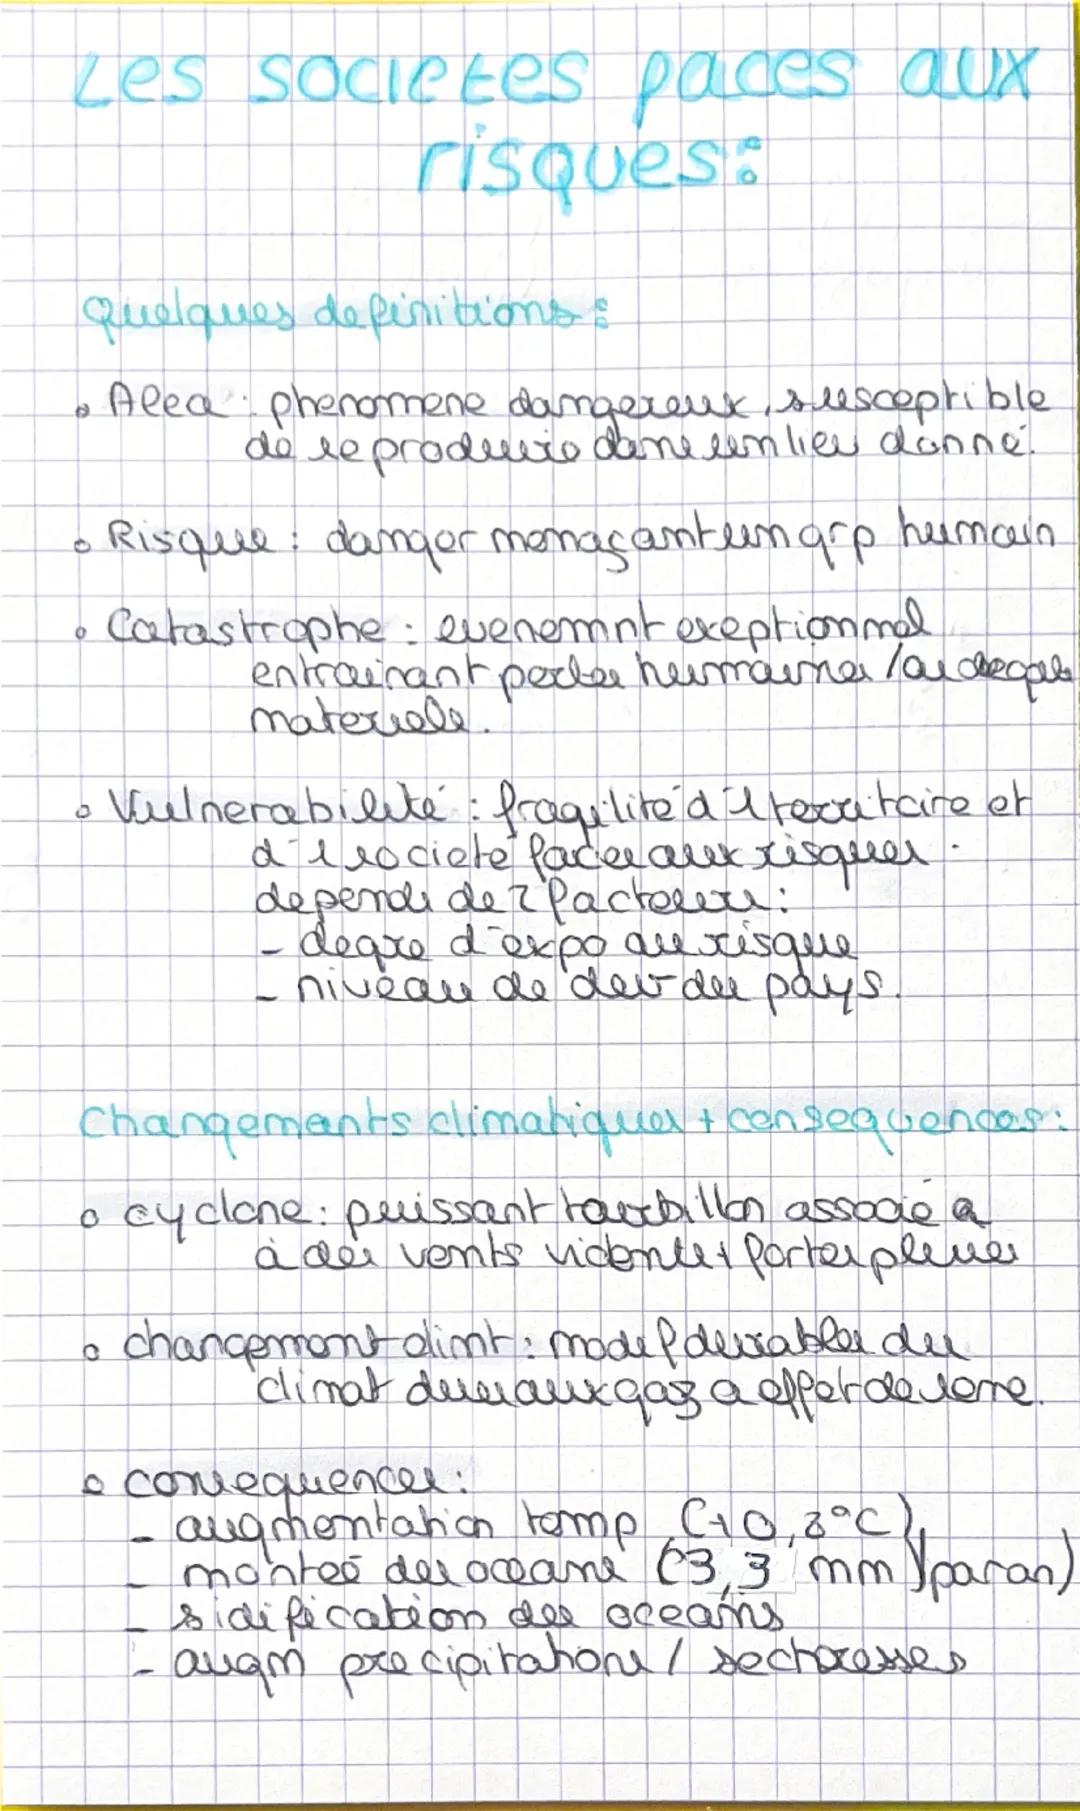 Les societes faces aux
risques:
Quelques definitions:
• Alea : phenomene dangereux, susceptible
de se produire dans un lieu donné.
• Risque : danger menaçant un grp humain
• Catastrophe : evenemnt exeptionnel
entrainant pertes humaines / ou degats
materiels.
• Vulnerabilité : fragilité d'1 territoire et
d'1 societé faces aux risques.
depends de 2 facteurs :
- degre d'expo au risque
- niveau de dev du pays.
Changements climatiques + consequences:
• cyclone : puissant tourbillon associé a
à des vents violents + fortes pluies
• changement climt : modif durables du
climat dues aux gaz a effet de serre.
• consequences :
- augmentation temp (+0,8°C)
- monteé des oceans (3,3 mm/paran)
- sidification des oceans
- augm precipitations / secheresses